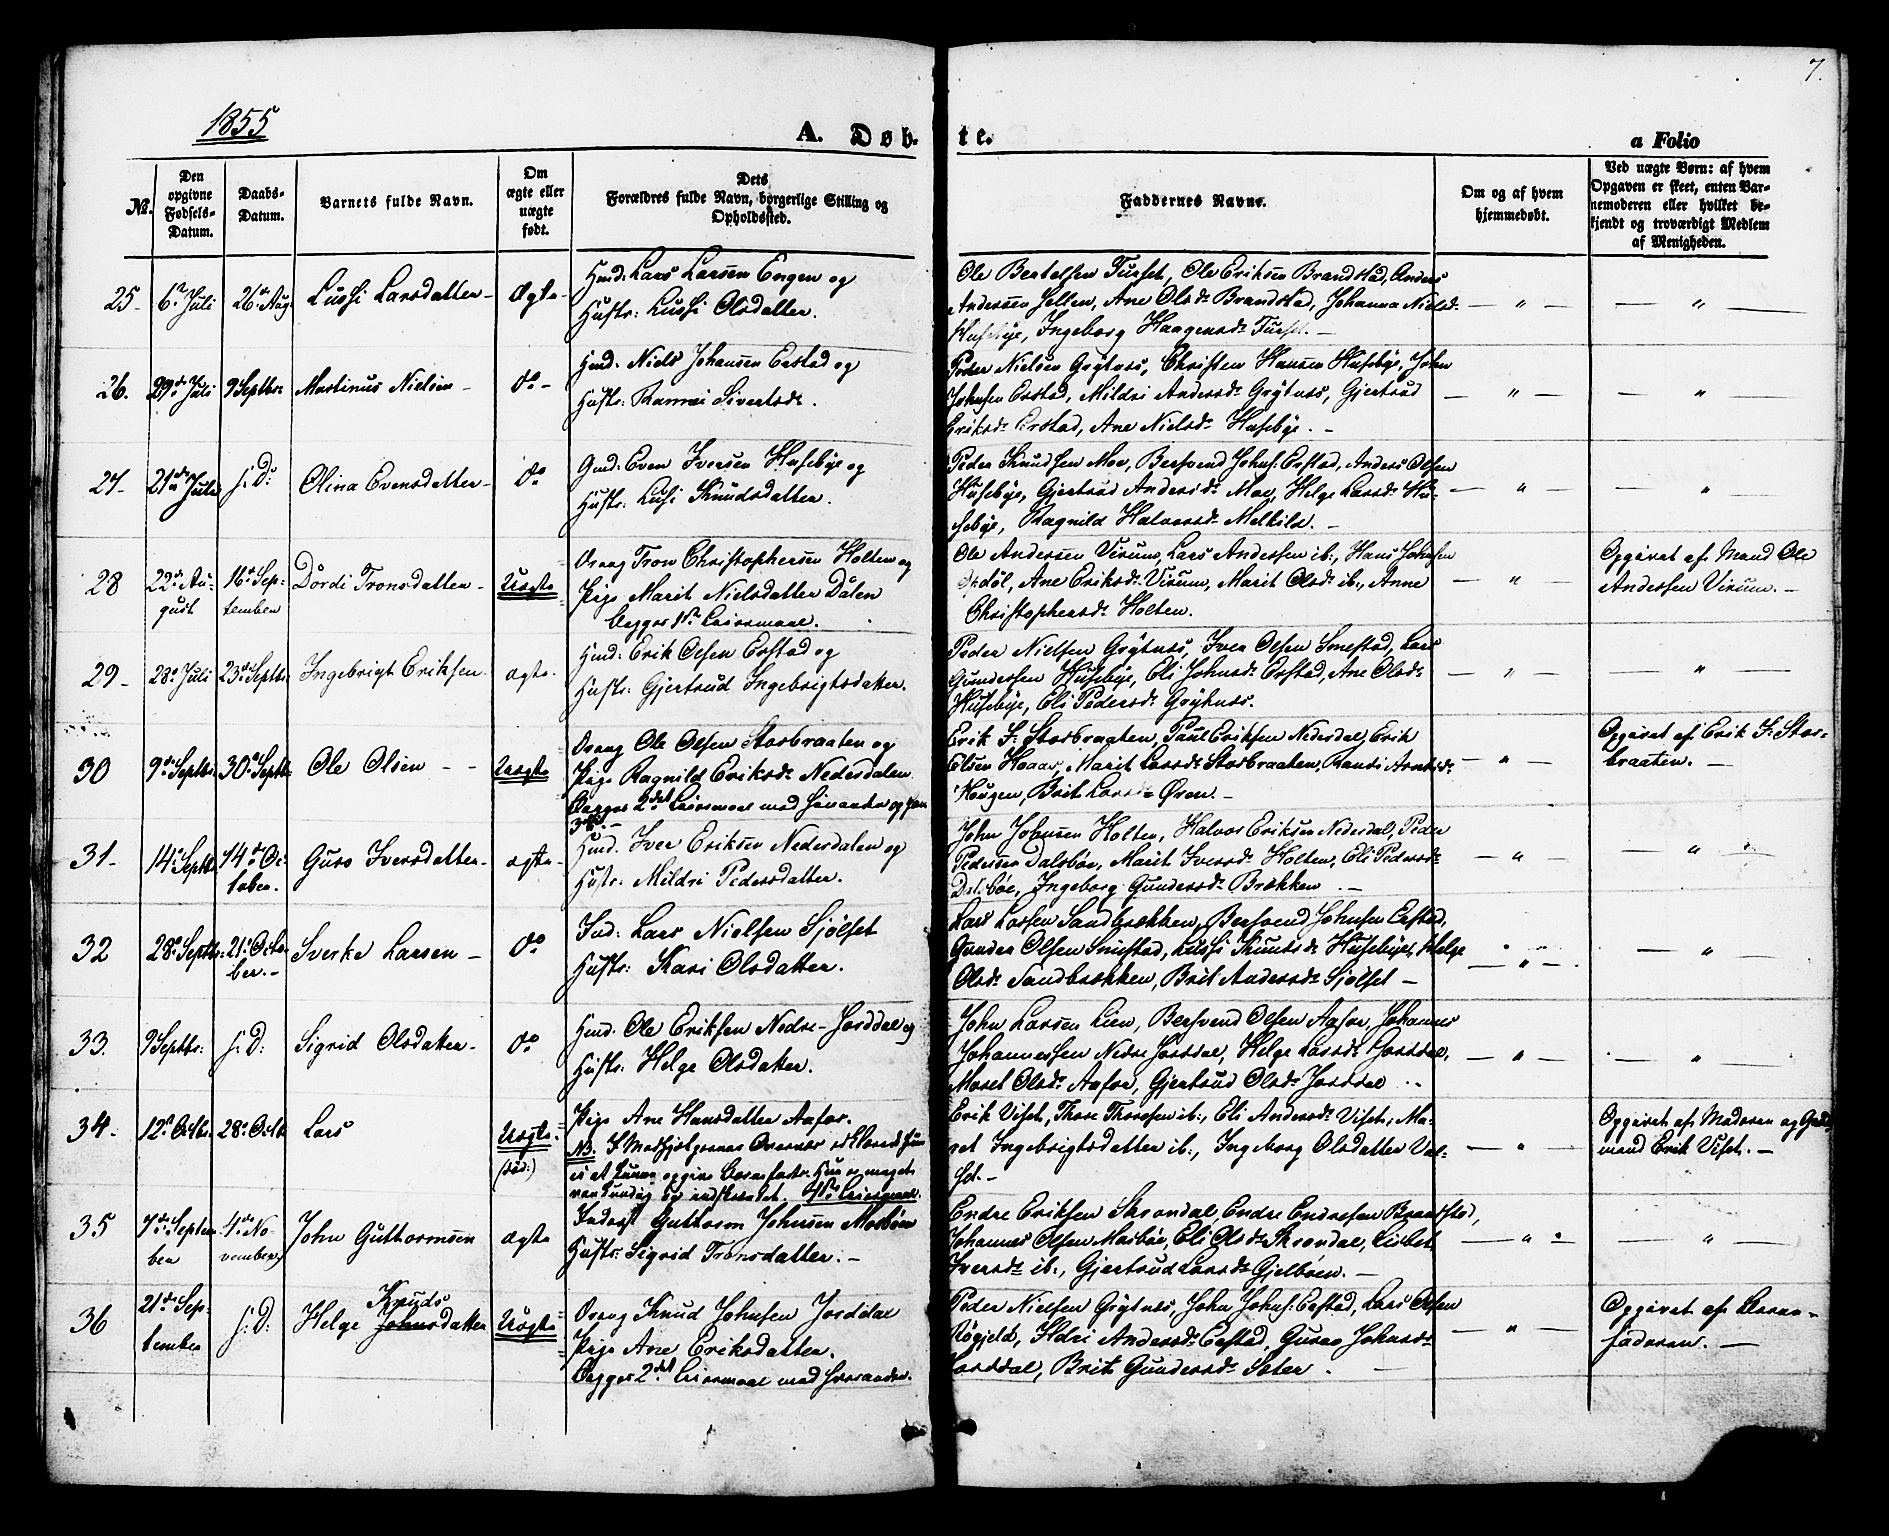 1855
A. Døb-
te.
a Folio
7.
No.
Den
opgivne
Fødsels-
Datum.
Daabs-
Datum.
Barnets fulde Navn.
Om
ægte eller
uægte
født.
Dets
Forældres fulde Navn, borgerlige Stilling og
Opholdssted.
Faddernes Navne.
Om og af hvem
hjemmedøbt.
Ved uægte Børn: af hvem
Opgaven er skeet, enten Bar-
nemoderen eller hvilket be-
kjendt og troværdigt Medlem
af Menigheden.
25 6 Juli 26 Aug Lussi Larsdatter Ægte Hmd: Lars Larsen Engen og
Hustr: Lussi Olsdatter.
Ole Bertelsen Furset, Ole Eriksen Brandstad, Anders
Anderssen Ane Olsd: Brandstad, Johanna Nielsd:
Husebye, Ingeborg Haagensd: Furset. — „ — — „ —
26. 29 Juli 9 Septbr: Martinus Nielsen Do Hmd: Niels Johansen Erstad og
Hustr: Sivertsdr.
Peder Nielsen Grytnes, Christen Hansen Husebye, John
Johnsen Erstad, Mildri Andersd: Grytnes, Gjertrud
Eriksd: Erstad, Ane Nielsd: Husebye. — „ — — „ —
27 21 Juli s: D: Olina Evensdatter Do Gmd: Even Iversen Husebye og
Hustr: Lusi Knudsdatter.
Peder Knudsen Moe, Bersvend Johns: Erstad, Anders Olsen
Husebye, Gjertrud Andersd: Moe, Helge Larsd: Hu-
sebye, Ragnild Halvorsd: Melkild. — „ — — „ —
28 22 Au-
gust 16 Sep-
tember Dordi Tronsdatter Uægte Drang Tron Christophersen Holten og
Pige Marit Nielsdatter Dalen
begges 1ste Leiermaal.
Ole Andersen Virum, Lars Andersen ib:, Hans Johnsen
Ane Eriksd: Virum, Marit Olsd: ib:, Anne
Christophersd: Holten. — „ —
Opgivet af Mand Ole
Andersen Virum. —
29 28 Juli 23 Septbr: Ingebrigt Eriksen ægte Hmd: Erik Olsen Erstad og
Hustr: Gjertrud Ingebrigtsdatter.
Peder Nielsen Grytnes, Iver Olsen Smestad, Lars
Gundersen Husebye, Eli Johnsd: Erstad, Ane Olsd:
Husebye, Eli Pedersd: Grytnes. — „ — — „ —
30 9 Septbr: 30 Septbr: Ole Olsen Uægte Drang Ole Olsen Storbraaten og
Pige Ragnild Eriksd: Nedredalen
Begges 2det Leiermaal med hinanden og
Erik I: Storbraaten, Paul Eriksen Nedredal, Erik
Elsen Haaar, Marit Larsd: Storbraaten, Randi Arntsd:
Haugen, Brit Larsd: Øren. — „ —
Opgivet af Erik I: Stor-
braaten. —
31. 14 Septbr: 14 Oc-
tober. Guro Iversdatter ægte Hmd: Iver Eriksen Nedredalen og
Hustr: Mildri Pedersdatter.
John Johnsen Holten, Halvor Eriksen Nedredal, Peder
Pedersen Dalsbøe, Marit Iversd: Holten, Eli Pedersd:
Dalsbøe, Ingeborg Gundersd: Brækken. — „ — — „ —
32 28 Septbr: 21 Octo-
ber. Sverke Larsen Do Ind: Lars Nielsen Sjølset
Hustr: Kari Olsdatter.
Lars Larsen Sandbrækken, Bersvend Johnsen Erstad,
Gunder Olsen Smestad, Lussi Knudsd: Husebye, Helge
Olsd: Sandbrækken, Brit Andersd: Sjølset — „ — — „ —
33. 9 Septbr: s: D: Sigrid Olsdatter Do Hmd: Ole Eriksen Nedre-Jorddal og
Hustr: Helge Olsdatter.
John Larsen Lien, Bersvend Olsen Aafor, Johannes
Johannessen Nedre Jorddal, Helge Larsd: Jorddal,
Maret Olsd: Aafor, Gjertrud Olsd: Jorddal — „ — — „ —
34 12 Octbr: 28 Octbr Lars Uægte
(død:) Pige Ane Hansdatter Aafor.
NB.
1ste Leiermaal.
Erik Viset, Thore Thoresen ib:, Eli Andersd: Viset, Ma-
ret Ingebrigtsdatter ib:, Ingeborg Olsdatter Val-
set. — „ —
Opgivet af Moderen og Gaard-
mand Erik Viset. —
35 7 Septem
ber 4 No-
vember John Guttormsen ægte Inderst Guttorm Johnsen Mosbøen
Hustr: Sigrid Tronsdatter. —
Endre Eriksen Skrondal, Endre Endresen Brandstad,
Johannes Olsen Mosbøe, Eli Olsd: Skrondal, Lisbet
Iversd: ib:, Gjertrud Larsd: Gjelbøen. — „ — — „ —
36 21 Sep-
tember s: D: Helge Johnsdatter Knuds Uægte Drang Knud Johnsen Jorddal
Pige Ane Eriksdatter.
Begges 2det Leiermaal med hverandre.
Peder Nielsen Grytnes, John Johns: Erstad, Lars Olsen
Røgjeld, Ildri Andersd: Erstad, Guroe Johnsd:
Jorddal, Brit Gundersd: Sæter. — „ —
Opgivet af Barne-
faderen. —